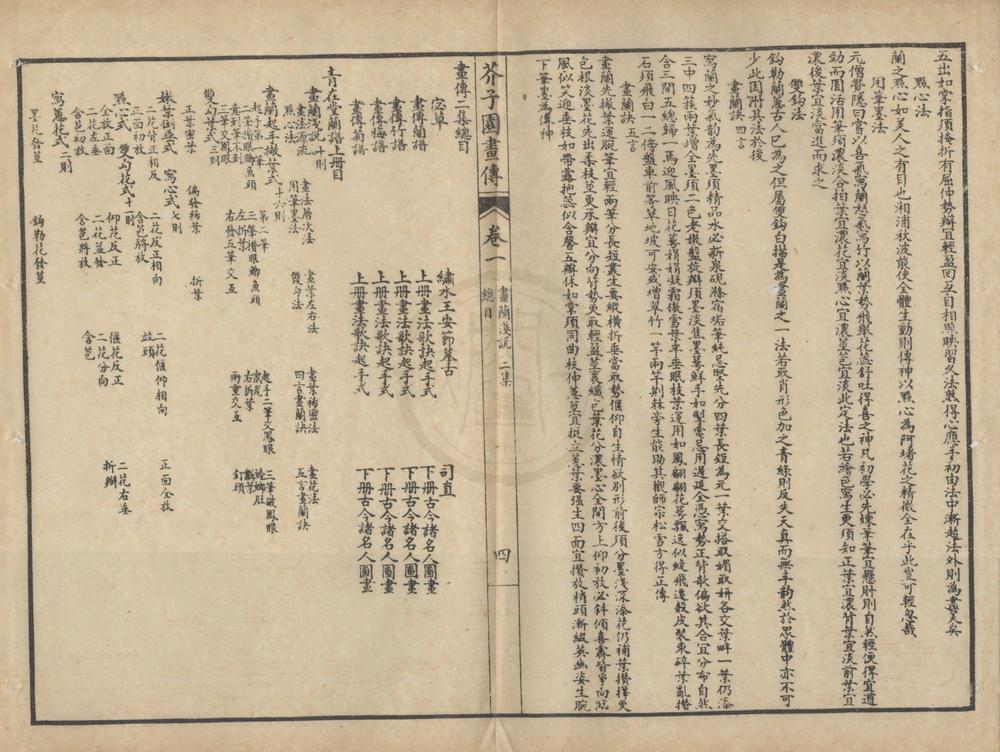 五出如掌指須掩折有屈伸勢瓣宜輕盈回互自相照映習久法熟得心應手初由法中漸超法外則為盡美矣
點心法
蘭之點心如美人之有目也湘浦秋波能使全體生動則傳神以點心為阿堵花之精微全在乎此豈可輕忽哉
用筆墨法
元僧覺隱曰嘗以喜氣寫蘭怒氣寫竹以蘭葉勢飛舉花蕊舒吐得喜之神凡初學必先煉筆筆宜懸肘則自然輕便得宜遒
勁而圓活用墨須濃淡合拍葉宜濃花宜淡點心宜濃莖苞宜淡此定法也若繪色寫生更須知正葉宜濃背葉宜淡前葉宜
濃後葉宜淡當進而求之
雙鈎法
鈎勒蘭蕙古人已為之但屬雙鈎白描是亦寫蘭之一法若取肖形色加之青綠則反失天真而無丰韵然於眾體中亦不可
少此因附其法於後
畫蘭訣 四言
寫蘭之妙氣韵為先墨須精品水必新泉硯滌宿垢筆純忌堅先分四葉長短為元一葉交搭取媚取妍各交葉畔一葉仍添
三中四簇兩葉增全墨須二色老嫩盤旋瓣須墨淡焦墨萼鮮手如掣電忌用遲延全憑寫勢正背欹偏欲其合宜分布自然
含三開五總歸一焉迎風映日花萼娟娟凝霜傲雪葉半垂眠枝葉運用如鳳翩翩花萼飄逸似蜨飛遷殼皮裝束碎葉亂攢
石須飛白一二傍盤車前等草地坡可安或增翠竹一竿兩竿荊棘旁生能助其觀師宗松雪方得正傳
畫蘭訣 五言
畫蘭先撇葉運腕筆宜輕兩筆分長短叢生要縱橫折垂當取勢偃仰自生情欲別形前後須分墨淺深添花仍補葉攢籜更
包根淡墨花先出柔枝莖更承瓣宜分向背勢更取輕盈莖裹纖包葉花分濃墨心全開方上仰初放必斜傾喜霽皆爭向臨
風似笑迎垂枝如帶露抱蕊似含馨五瓣休如掌須同曲枝伸蕙莖宜挺立蕙葉要強生四面宜攢放梢頭漸綴英幽姿生腕
下筆墨為傳神
芥子園畫傳 卷一 畫蘭淺說 二集 總目 四
畫傳二集總目
宓草 繡水王安節摹古 司直
畫傳蘭譜 上册畫法歌訣起手式 下册古今諸名人圖畫
畫傳竹譜 上册畫法歌訣起手式 下册古今諸名人圖畫
畫傳梅譜 上册畫法歌訣起手式 下册古今諸名人圖畫
畫傳菊譜 上册畫法歌訣起手式 下册古今諸名人圖畫
青在堂蘭譜上册目
畫蘭淺說十則
畫法源流 畫法層次法 畫葉左右法 畫葉稀密法 畫花法
點心法 用筆墨法 雙鈎法 四言畫蘭訣 五言畫蘭訣
畫蘭起手撇葉式十六則
起手第一筆 第二筆 起手二筆交鳳眼 三筆破鳳眼
二筆攢根鯽魚頭 三筆攢眼鯽魚頭
意到筆不到 左折葉 右折葉 釘頭
三筆鳳眼 右發五筆交互 兩重交互
雙勾式三則
正葉密葉 偏發稀葉 折葉
嫩葉倒垂式 寫心式七則
二花背正相反 二花反正相向 二花偃仰相向 正面全放
正面初放 含苞將放 並頭
點心式 雙勾花式十一則
全放正面 仰花反正 偃花反正 二花右垂
二花左垂 二花並發 二花分向 折瓣
含苞初放 含苞將放 含苞
寫蕙花式二則
墨花含莖 鈎勒花發莖